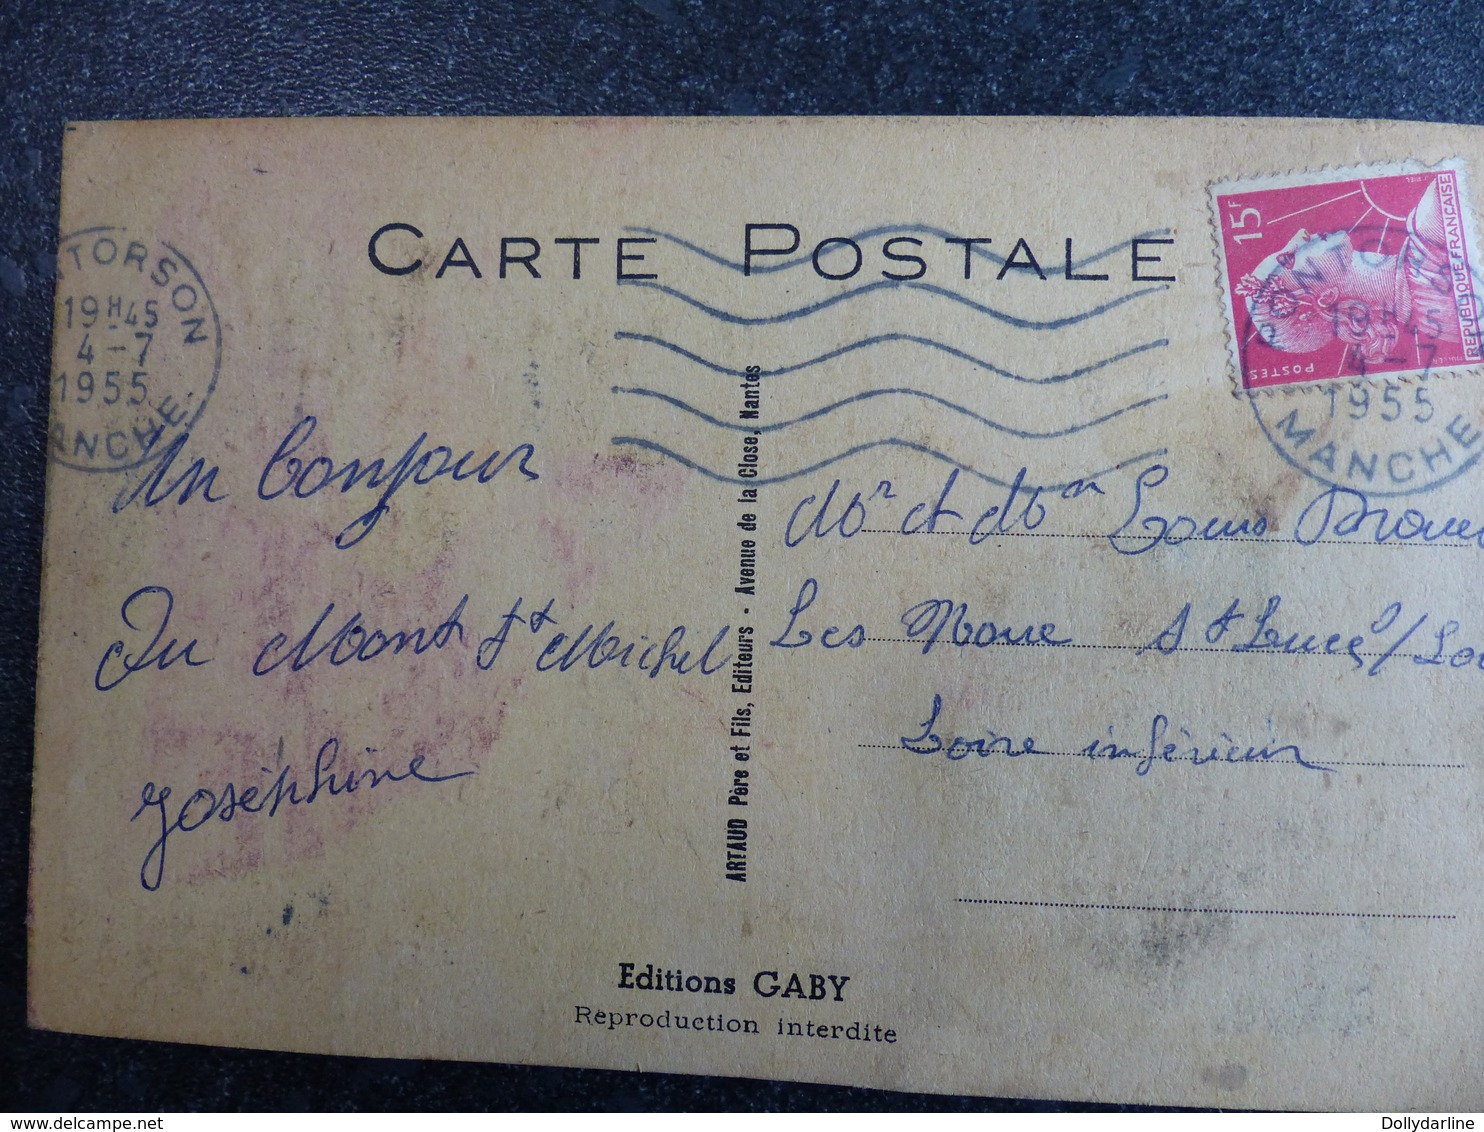 CARTE POSTALE
TORSON
19H45
4-7
1955
ANCHE
15F
REPUBLIQUE FRANÇAISE
POSTES
PONTORS
19H45
4-7
1955
MANCHE
Un bonjour
Du Mont St Michel
Joséphine
ARTAUD Père et Fils, Editeurs - Avenue de la Close, Nantes
Mr et Mm Louis
Les St Luce s/Loi
Loire inférieur
Editions GABY
Reproduction interdite
delcampe.net
Dollydarline